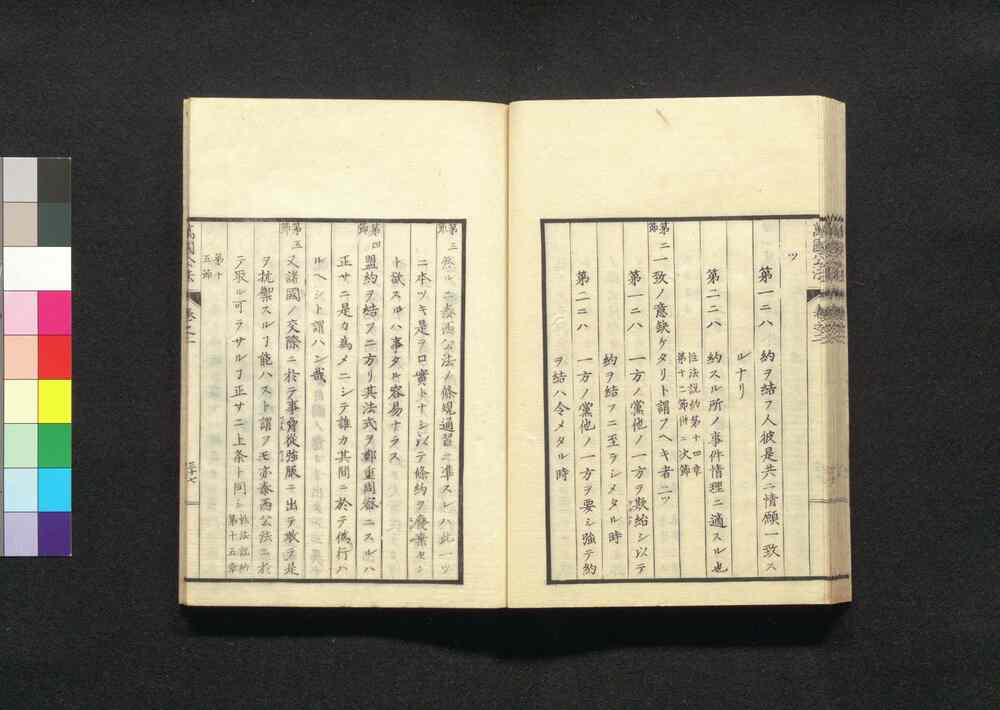 ツ
第一ニハ 約ヲ結フ人彼是共ニ情願一致ス
ルナリ
第二ニハ 約スル所ノ事件情理ニ適スル也
性法説約第十四章
第十二節附ニ次節
第二節
一致ノ意缺ケタリト謂フヘキ者二ツ
第一ニハ 一方ノ黨他ノ一方ヲ欺紿シ以テ
約ヲ結フニ至ラシメタル時
第二ニハ 一方ノ黨他ノ一方ヲ要シ強テ約
ヲ結ハ令メタル時
萬國公法 卷之二
第三節
然ルニ泰西公法ノ條規通習ニ準スレハ此一ツ
ニ本ツキ是ヲ口實トナシ以テ條約ヲ廢棄セン
ト欲スルハ事タル容易ナラス
第四節
盟約ヲ結フニ方リ其法式ヲ鄭重周密ニスルハ
正サニ是カ為メニシテ誰カ其間ニ於テ偽行ハ
ルヘシト謂ハン哉
第五節
又諸國ノ交際ニ於テ事脅從強脈ニ出テ敢テ是
ヲ抗禦スルヿ能ハスト謂フモ亦泰西公法ニ於
テ取ル可ラサルヿ正サニ上条ト同シ
性法説約
第十五章
第十
五節
萬國公法 卷之二 三十七